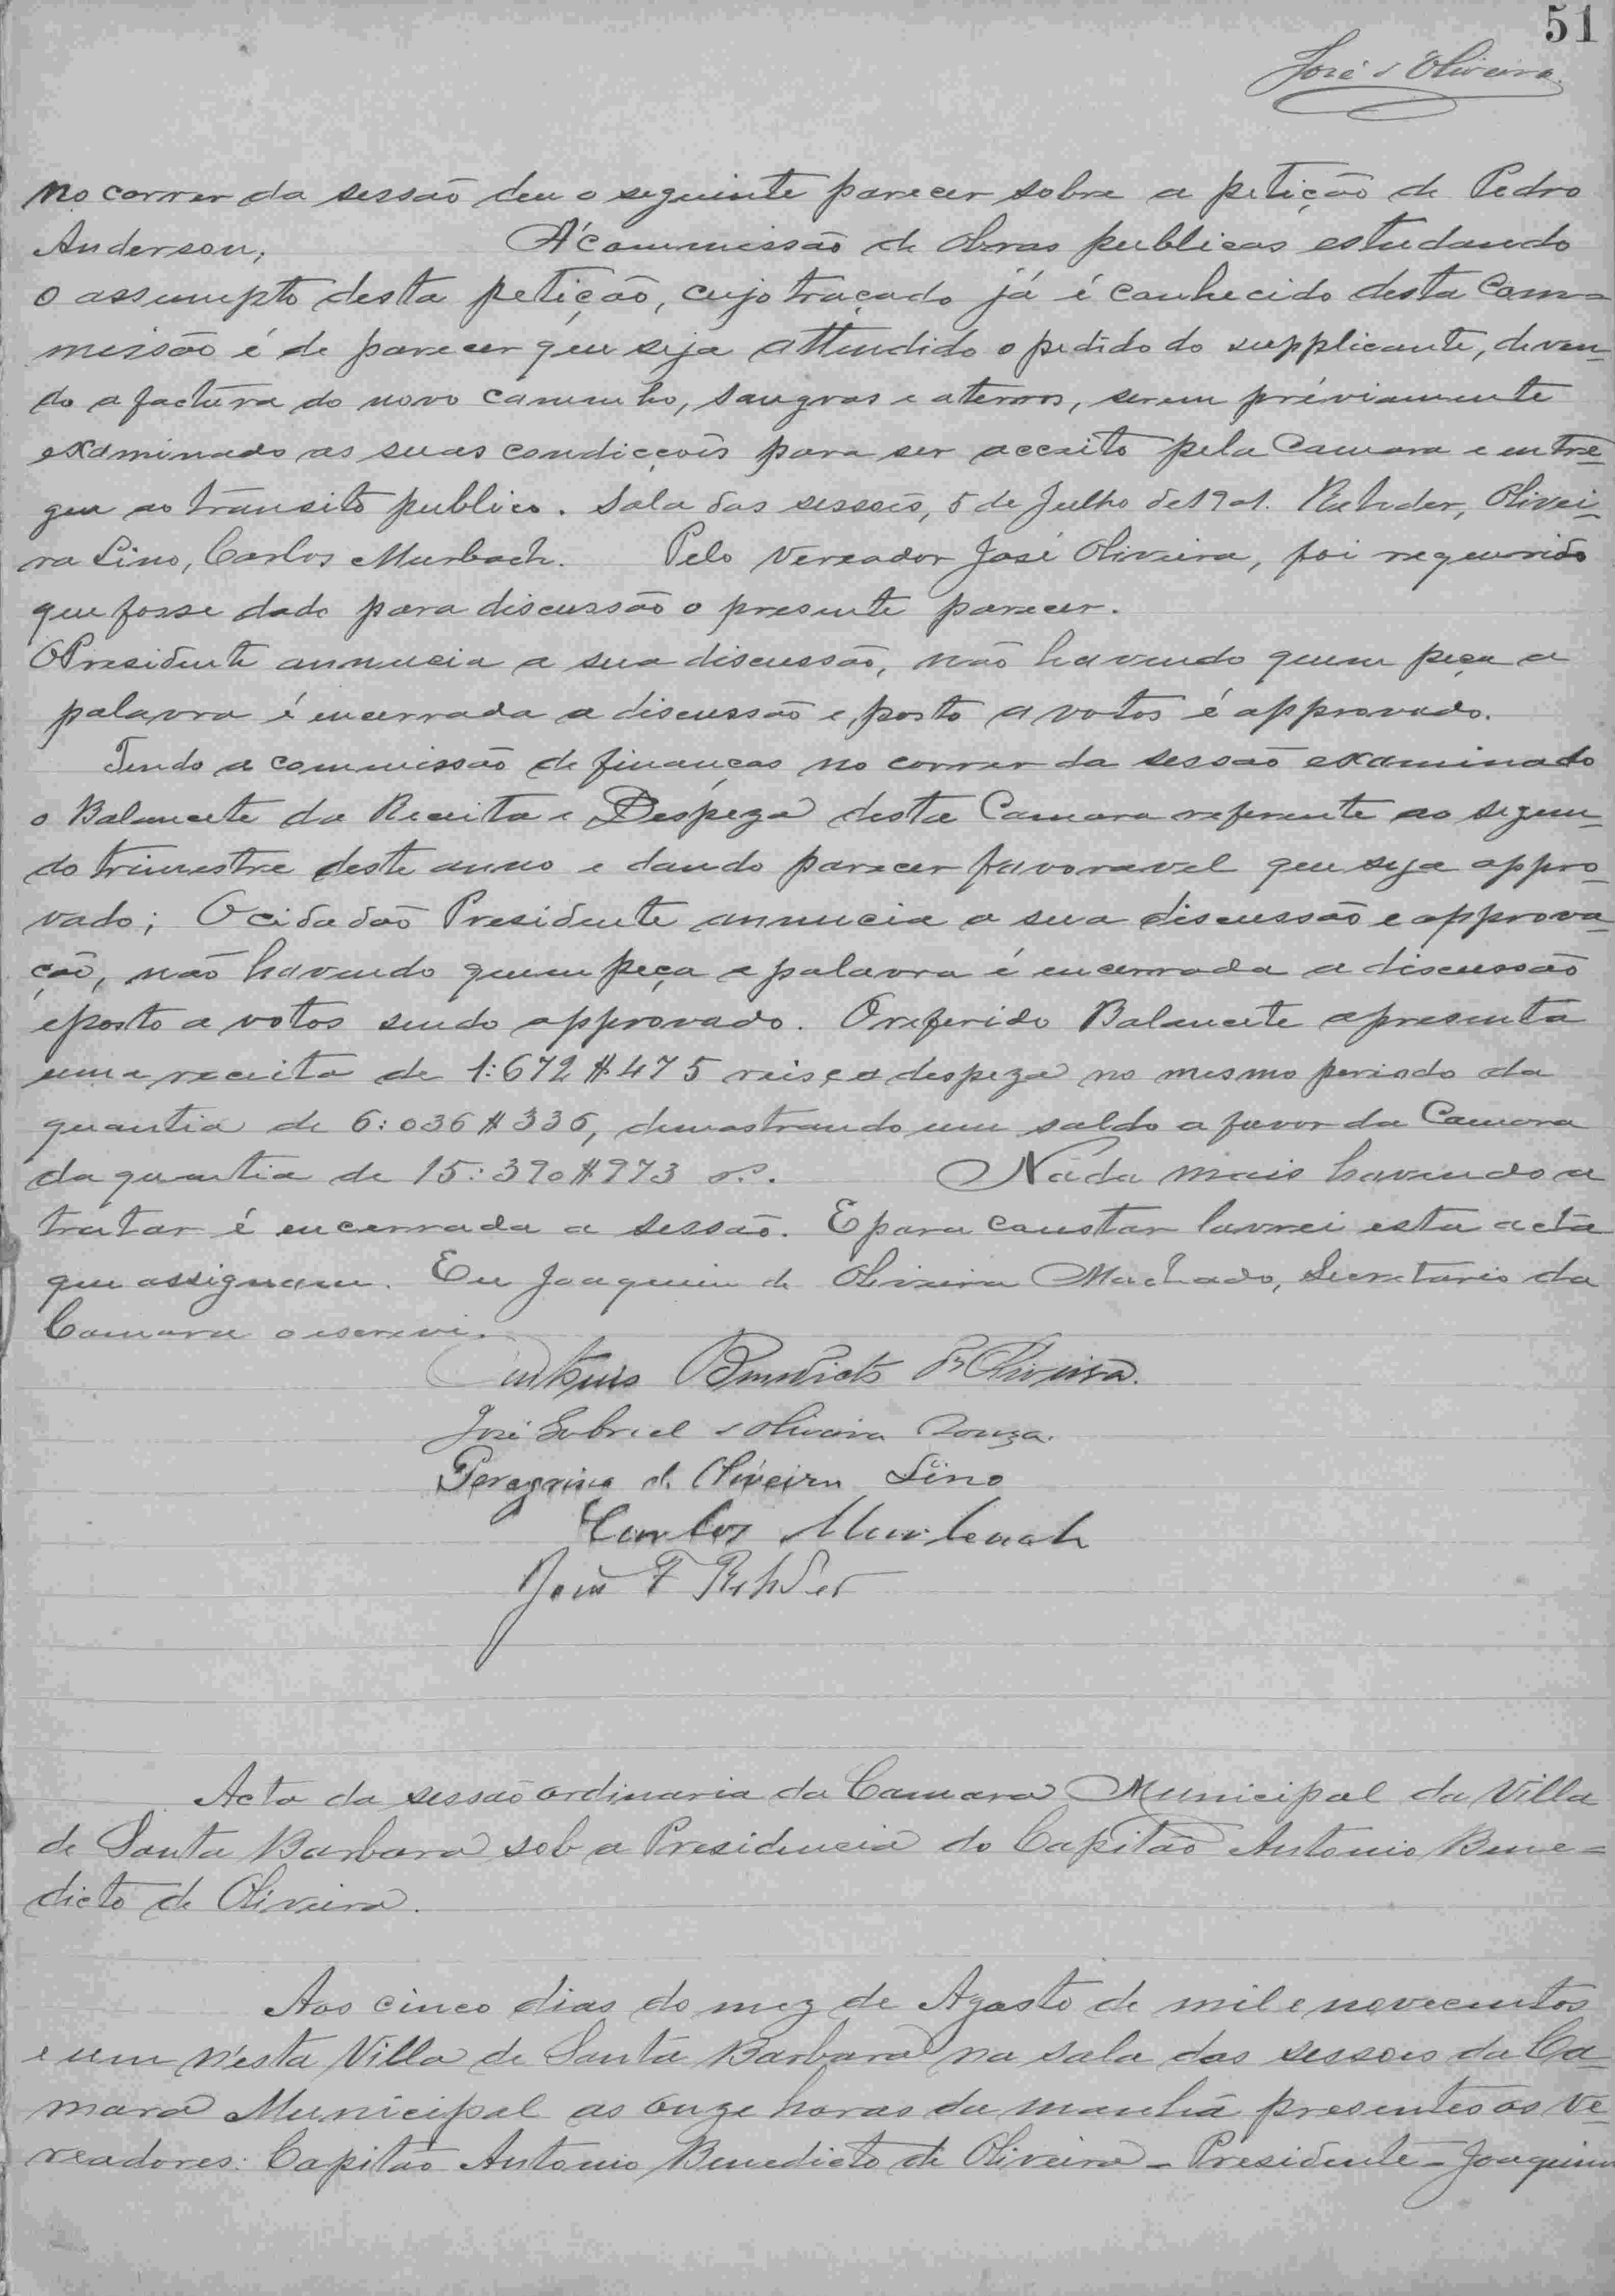 51
José d'Oliveira
no correr da sessão deu o seguinte parecer sobre a petição de Pedro
Anderson, A' commissão de Obras publicas estudando
o assumpto desta petição, cujo traçado já é conhecido desta Com=
missão é de parecer que seja attendido o pedido do supplicante, deven-
do a factura do novo caminho, sangras e aterros, serem préviamente
examinado as suas condicções para ser acceito pela Camara e entre-
gue ao transito publico. Sala das sessões, 5 de Julho de 1901. Rehder, Olivei-
ra Lino, Carlos Murbach. Pelo Vereador José Oliveira, foi requerido
que fosse dado para discussão o presente parecer.
O Presidente annuncia a sua discussão, não havendo quem peça a
palavra é encerrada a discussão e posto a votos é approvado.
Tendo a commissão de finanças no correr da sessão examinado
o Balancete da Receita e Despeza desta Camara referente ao segun-
do trimestre deste anno e dando parecer favoravel que seja appro-
vado; O cidadão Presidente annuncia a sua discussão e approva-
ção, não havendo quem peça a palavra é encerrada a discussão
e posto a votos sendo approvado. O referido Balancete apresenta
uma receita de 1:672$475 reis, e a despeza no mesmo periodo da
quantia de 6:036$336, demostrando um saldo a favor da Camara
da quantia de 15:390$973 rs. Nada mais havendo a
tratar é encerrada a sessão. E para constar lavrei esta acta
que assignam. Eu Joaquim de Oliveira Machado, Secretario da
Camara o escrevi.
Antonio Benedicto de Oliveira.
José Gabriel d'Oliveira Souza.
Peregrino de Oliveira Lino
Carlos Murbach
João F Rehder
Acta da sessão ordinaria da Camara Municipal da Villa
de Santa Barbara sob a Presidencia do Capitão Antonio Bene=
dicto de Oliveira.
Aos cinco dias do mez de Agosto de mil e novecentos
e um n'esta Villa de Santa Barbara na sala das sessões da Ca-
mara Municipal as onze horas da manhã presentes os Ve-
readores: Capitão Antonio Benedicto de Oliveira - Presidente - Joaquim